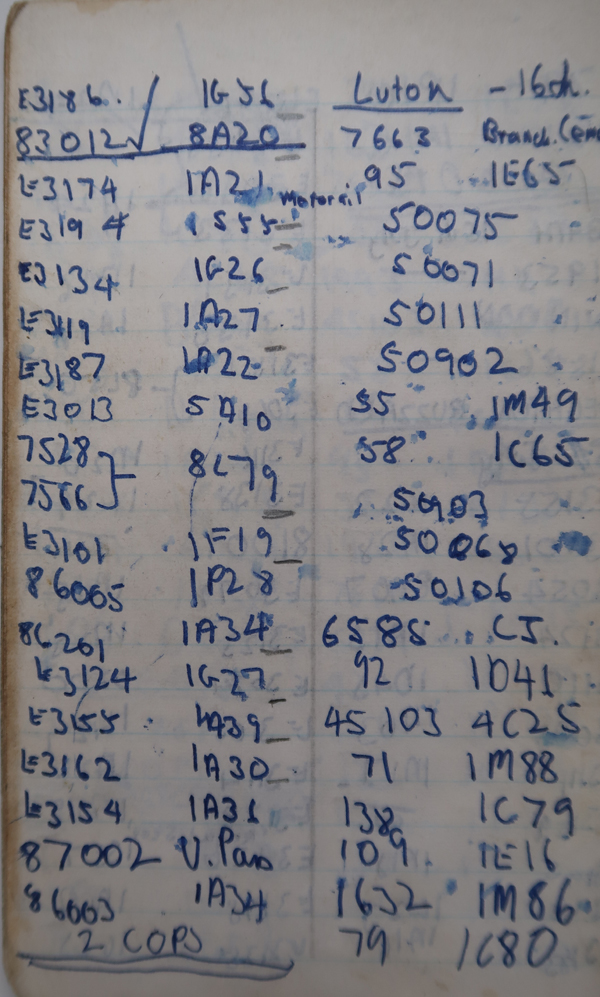 E3186. √ 1G51
83012 √ 8A20
E3174 1A21 Motorail
E3194 1S55
E3134 1G26
E3119 1A27
E3187 1A22
E3013 5A10
7528 } - 8C79
7566
E3101 1F19
86005 1P28
86261 1A34
E3124 1G27
E3155 1A39
E3162 1A30
E3154 1A31
87002 V.Pan
86003 1A34
2 COPS
Luton - 16th.
7663 Branch.
95 1E65
50075
50071
50111
50902
55 1M49
58 1C65
50903
50068
50106
6585 CJ.
92 1O41
45103 4C25
71 1M88
138 1C79
109 1E16
1632 1M86
79 1C80